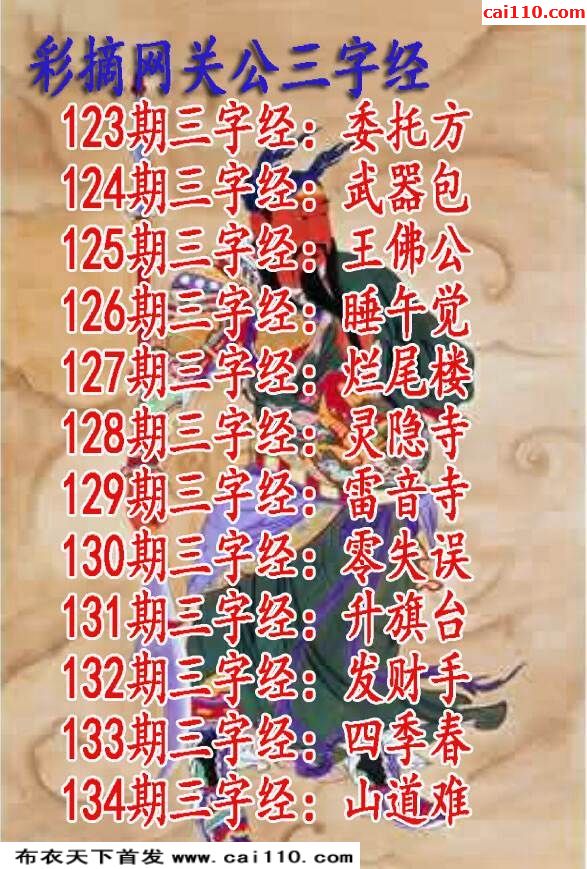 cai110.com
彩摘网关公三字经
123期三字经：委托方
124期三字经：武器包
125期三字经：王佛公
126期三字经：睡午觉
127期三字经：烂尾楼
128期三字经：灵隐寺
129期三字经：雷音寺
130期三字经：零失误
131期三字经：升旗台
132期三字经：发财手
133期三字经：四季春
134期三字经：山道难
布衣天下首发 www.cai110.com